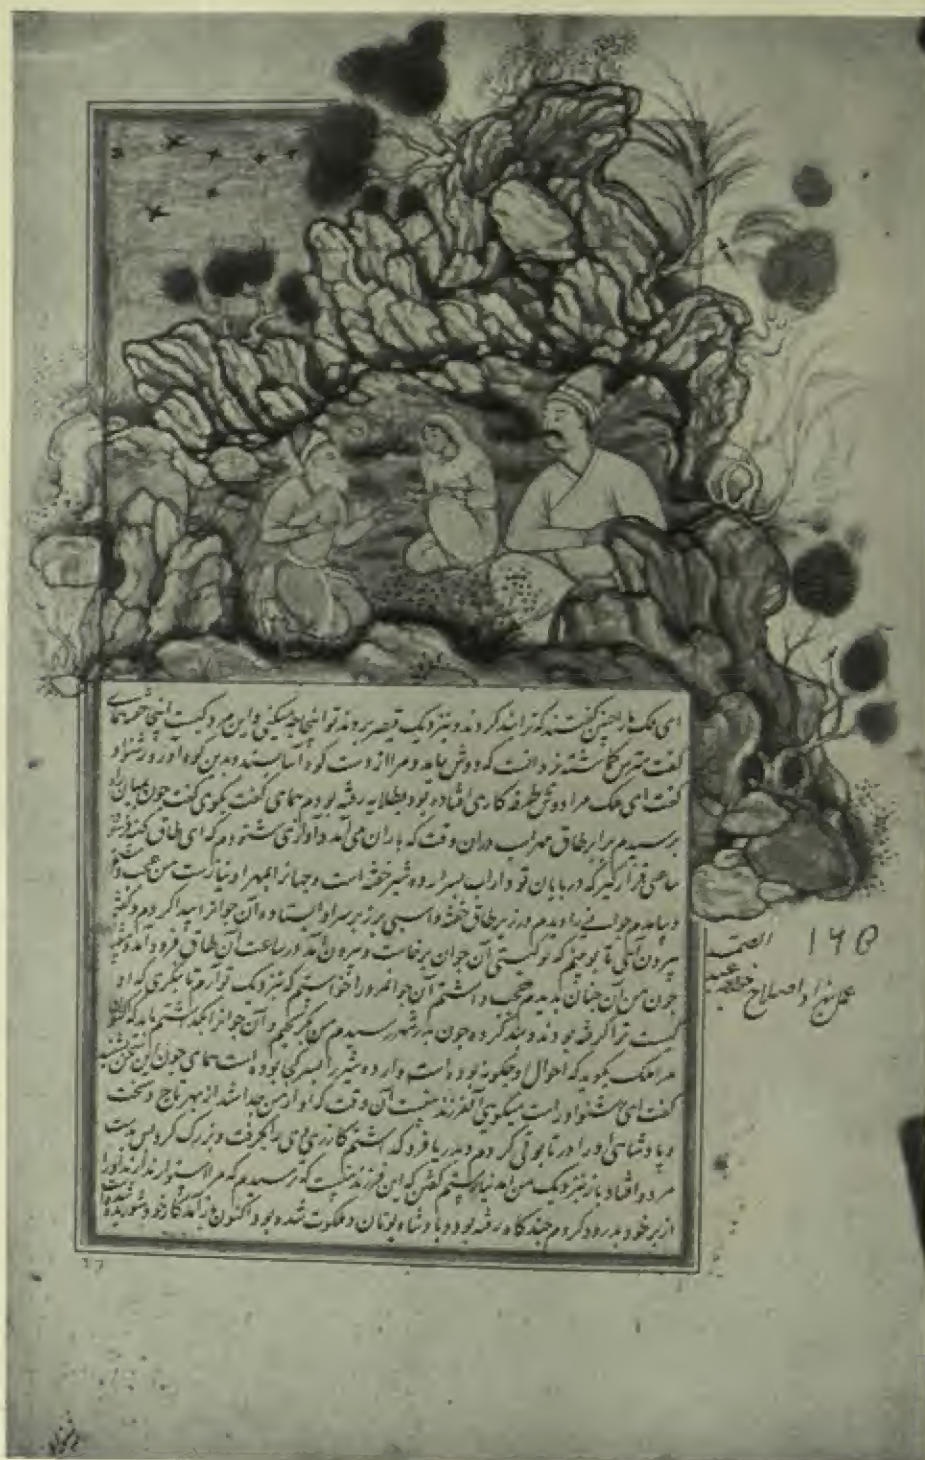 ای ملک ما را چنین گفتند که ترا بند کردند و بنزدیک قیصر بردند تو اینجا چه میکنی و این مرد کیست اینجا همای
گفت مترس که دوش بیامد و مرا از دست کوه آسا بستد و بدین کوه آورد رشنواد
گفت ای ملک مرا دوش طرفه کاری افتاده بود بطلایه رفته بودم همای گفت بگوی گفت چون بمیان راه
برسیدم برابر طاق مهراب دران وقت که باران می آمد و آوازی شنودم که ای طاق
ساعتی قرار گیر که در پایان تو داراب پسر اردشیر خفته است و جهانرا بمهر او نیازست من عجب داشتم
و بیامدم جوانی را دیدم در زیر طاق خفته و اسبی بر زبر سر او ایستاده آن جوانرا بیدار کردم و گفتم
بیرون آی تا بینم که تو کیستی آن جوان برخاست و بیرون آمد در ساعت آن طاق فرود آمد
چون من آن چنان بدیدم عجب داشتم آن جوانمرد را خواستم که بنزدیک تو آرم تا بنگری که او
کیست ترا گرفته بودند و بند کرده چون بدر شهر رسیدم من بگریختم و آن جوانرا بگذاشتم باید که
مرا ملک بگوید که احوال او چگونه بوده است و اردشیر را پسر کی بوده است همای چون این سخن بشنید
گفت ای رشنواد راست میگویی آن فرزند منست آن وقت که او از من جدا شد از بهر تاج و تخت
و پادشاهی او را در تابوتی کردم و بدریا فرو گذاشتم گازری وی را بگرفت و بزرگ کرد پس بدست
مردو افتاد باز بنزدیک من آمد نیارستم گفتن که این فرزند منست که ترسیدم که مرا استوار ندارند او را
از بر خود بدرود کردم چند گاه رفته بود و پادشاه یونان و ملکوت شده بود اکنون باز آمد کار خود شوریده
عمل بهزاد و اصلاح خواجه عبد
الصمد